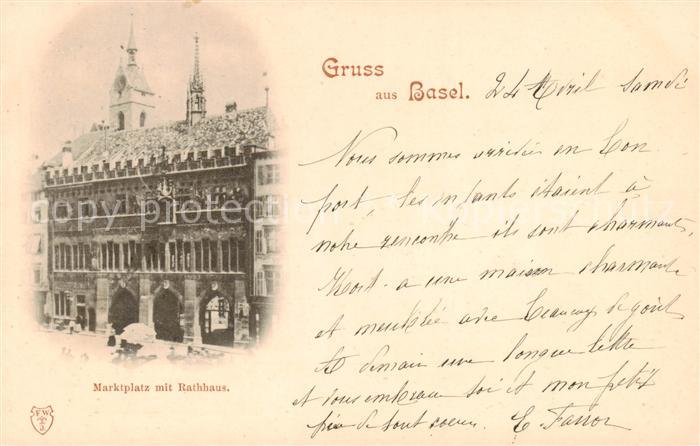 Gruss
aus Basel. 24 Avril samdi
Nous sommes arrivées en bon
port, les enfants étaient à
notre rencontre ils sont charmants,
Mort. a une maison charmante
et meublée avec beaucoup de goût
à demain une longue lettre
et vous embrasse toi et mon petit
de tout coeur. E. Farror
Marktplatz mit Rathhaus.
FW
copy protection Kopierschutz